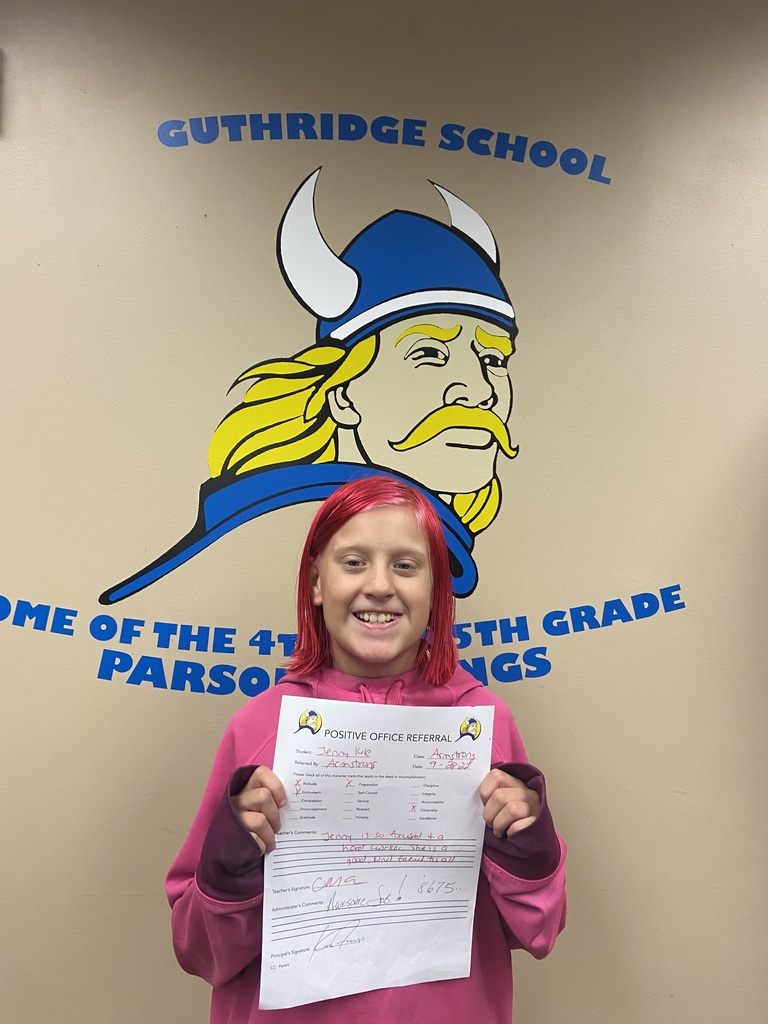 GUTHRIDGE SCHOOL
OME OF THE 4T 5TH GRADE
PARSO NGS
POSITIVE OFFICE REFERRAL
Student: Jenny Class: Armstrong
Referred By: Armstrong Date: 9-20-22
Please check all of the character traits that apply to the deed or accomplishment.
X Attitude X Preparation Discipline
X Enthusiasm Self-Control Integrity
Compassion Service Accountability
Encouragement Respect X Citizenship
Gratitude Honesty Excellence
Teacher's Comments: Jenny is so focused & a
hard worker. She is a
good, kind friend to all
Teacher's Signature:
Administrator's Comments: Awesome Job! "8675...
Principal's Signature:
CC: Parent